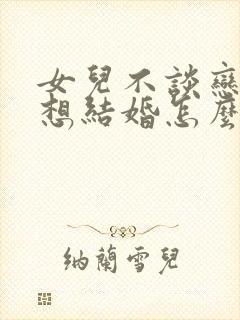 女兒不談戀
想結婚怎麼
納蘭雪兒